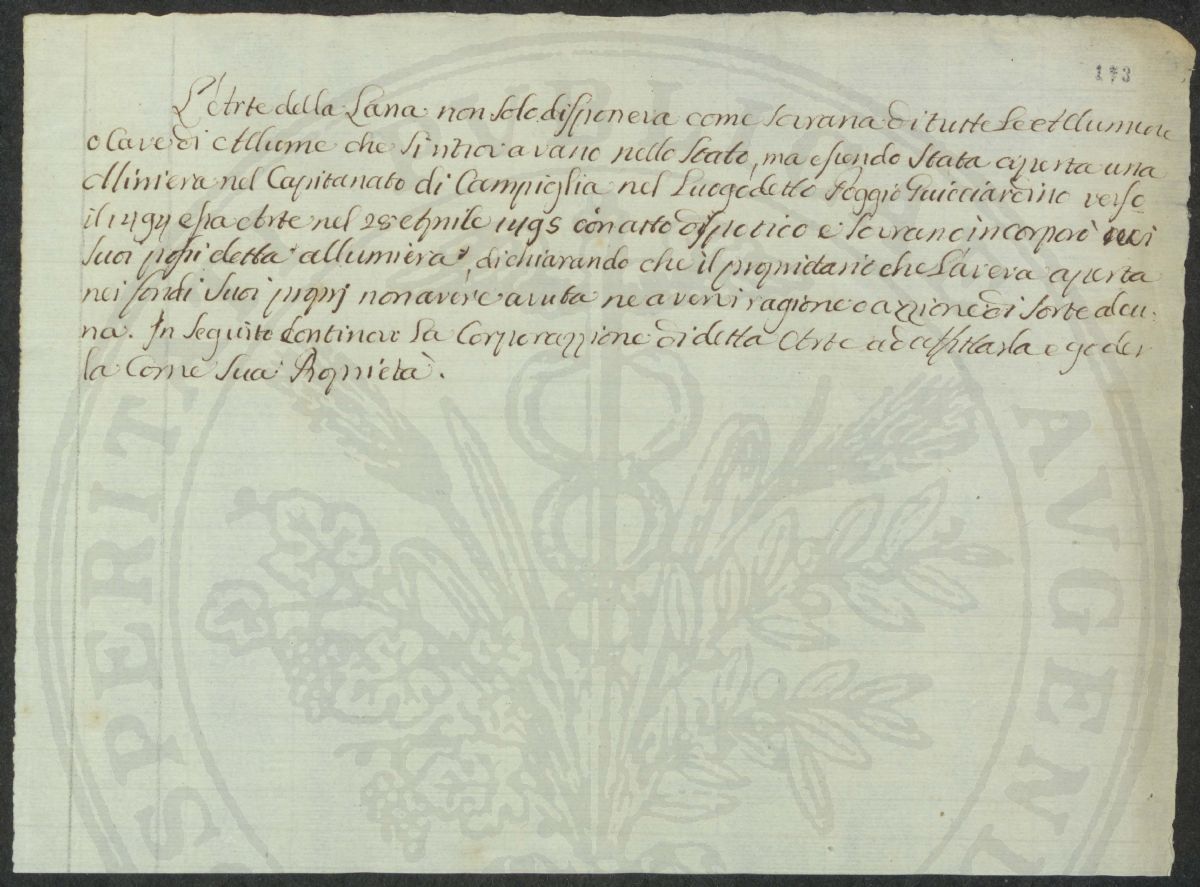 173
L'Arte della Lana non Solo disponeva come Sovrana di tutte Le Allumiere
o Cave di Allume che Si ritrovavano nello Stato, ma essendo Stata aperta una
Miniera nel Capitanato di Campiglia nel Luogo detto Poggio Guicciardino verso
il 1494 essa Arte nel 28 Aprile 1495 con atto dispotico e Sovrano incorporò
Suoi detta allumiera, dichiarando che il propietario che L'aveva aperta
nei fondi Suoi proprj non avere avuta ne avervi ragione o azzione di Sorte alcu-
na. In Seguito Continovò La Corporazzione di detta Arte ad affittarla e goder
la Come Sua Propietà.
PVBLICA
SPERIT.
AVGEND